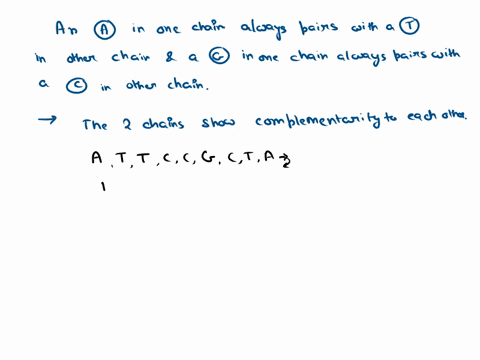 An A in one chain always pairs with a T
in other chain & a G in one chain always pairs with
a C in other chain.
→ The 2 chains show complementarity to each other.
A, T, T, C, C, G, C, T, A →